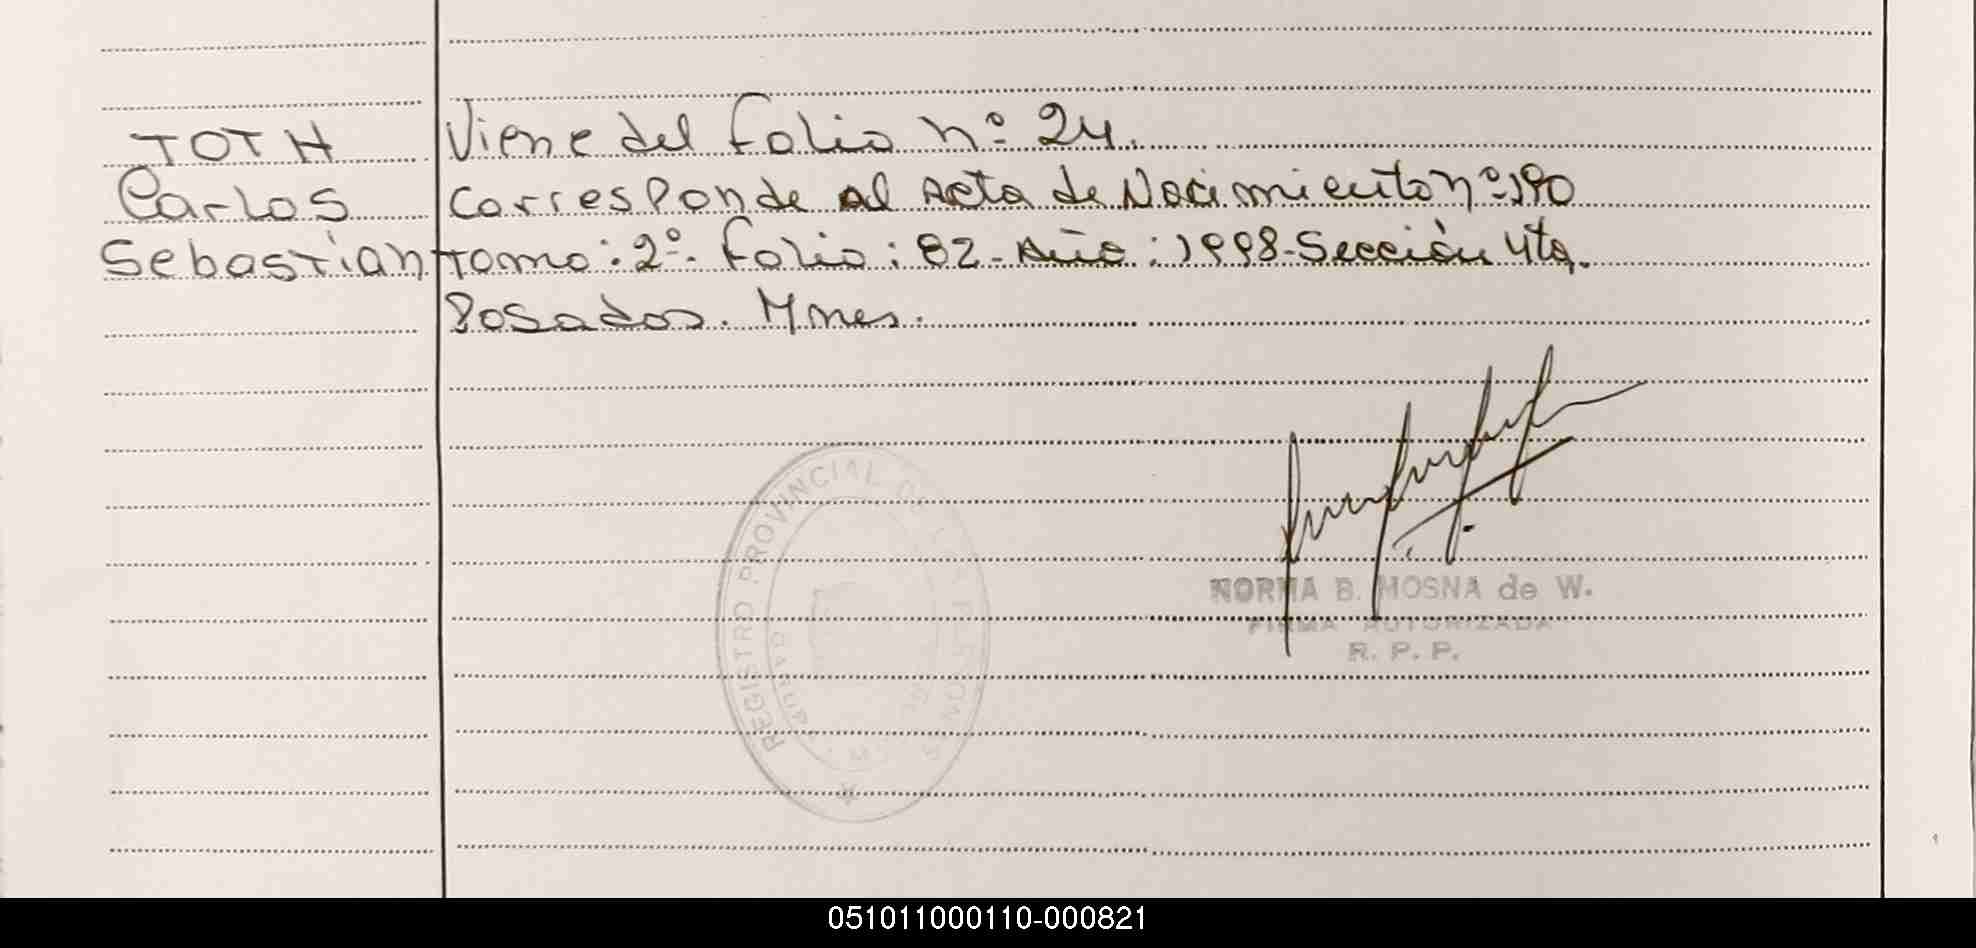 TOTH
Carlos
Sebastián
Viene del folio nº 24.
Corresponde al Acta de Nacimiento nº 190
tomo: 2º. folio: 82 - Año: 1998 - Sección 4ta.
Posadas. Mnes.
REGISTRO PROVINCIAL DE LAS PERSONAS
NORMA B. MOSNA de W.
FIRMA AUTORIZADA
R. P. P.
051011000110-000821